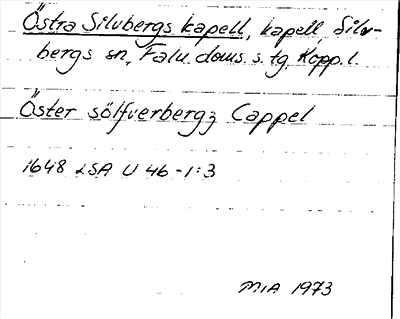 Östra Silvbergs kapell, kapell, Silv-
bergs sn, Falu doms. s. tg Kopp. l.
Öster sölfverbergz Cappel
1648 LSA U 46-1:3
MIA 1973